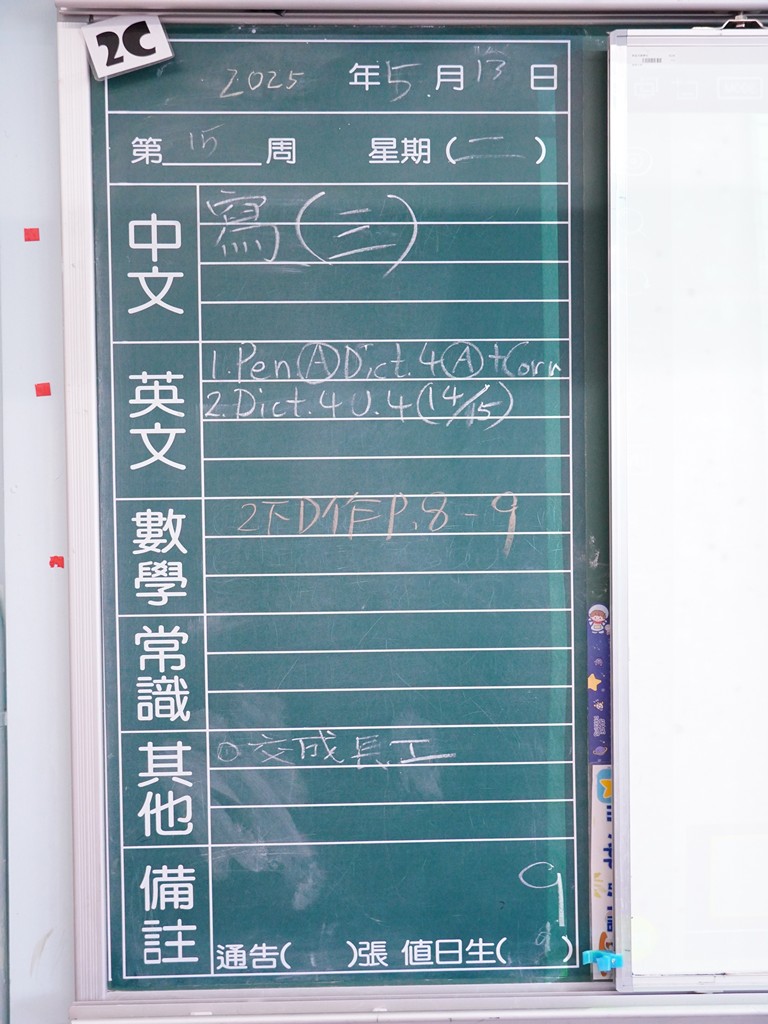 2C
2025 年 5 月 13 日
第 15 周 星期 (二)
中文 寫(三)
英文 1. Pen Ⓐ Dict. 4 Ⓐ + Corr
2. Dict. 4 U. 4 (14/15)
數學 2下D作P. 8 - 9
常識
其他 ① 交成長工
備註 9
通告( )張 值日生( 9 )